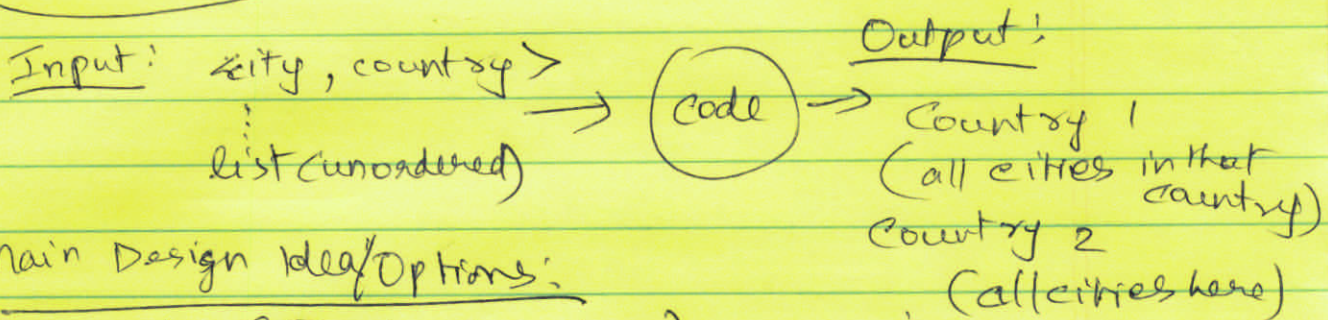 Input: <city, country>
list (unordered)
code
Output:
Country 1
(all cities in that
country)
Country 2
(all cities here)
Main Design Idea/Options: